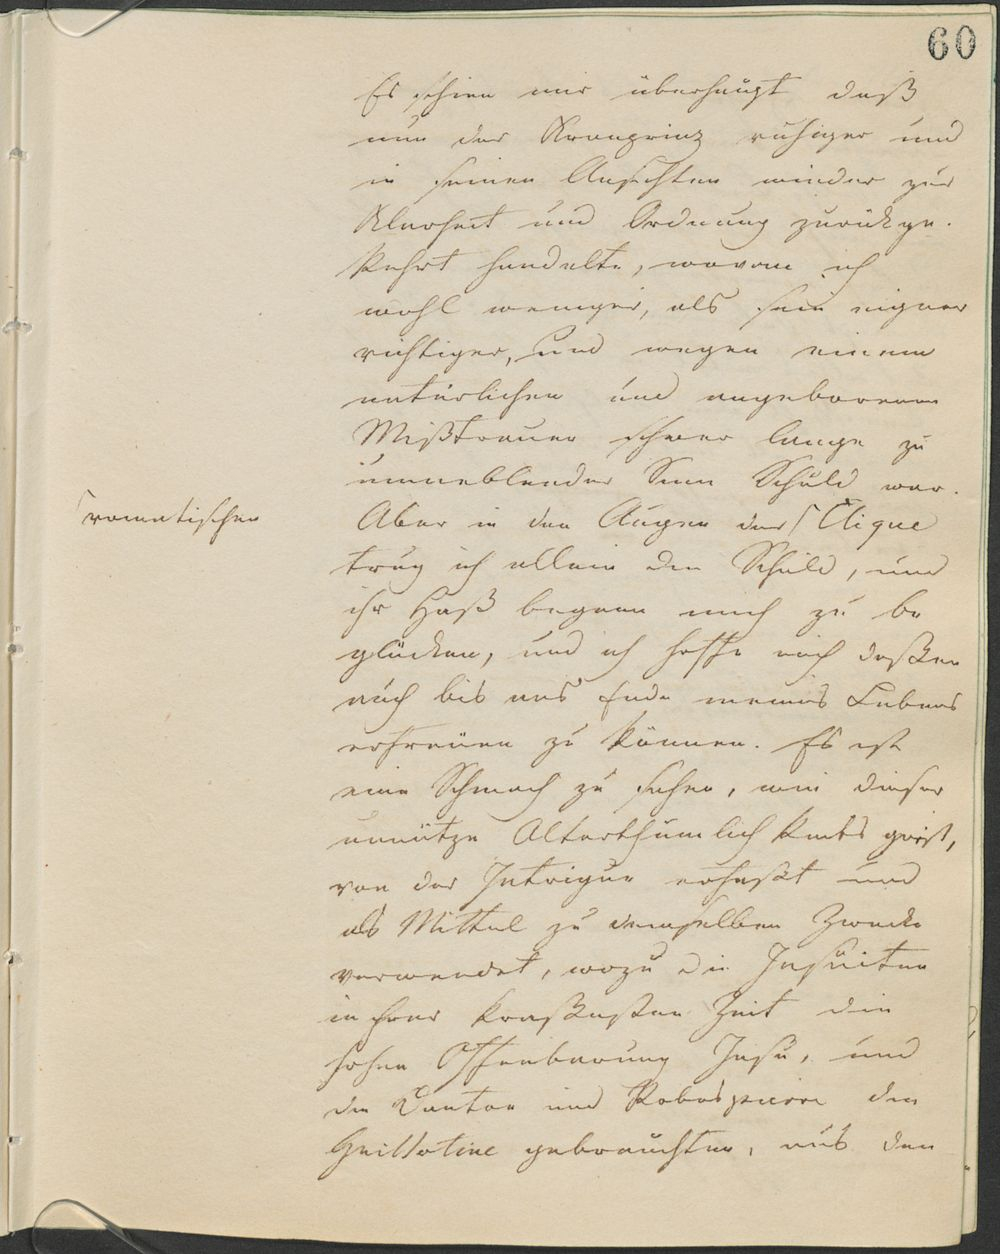 60
Es schien mir überhaupt daß
nun der Kronprinz ruhiger und
in seinen Ansichten wieder zur
Klarheit und Ordnung zurückge-
kehrt handelte, woran ich
wohl weniger, als sein eigner
richtiger, und wegen einem
natürlichen und angeborenen
Mißtrauen schwer lange zu
umneblender Sinn Schuld war.
Aber in den Augen der ⌈ Clique
⌈romantischen
trug ich allein die Schuld, und
ihr Haß begann mich zu be
glücken, und ich hoffe mich deßen
auch bis ans Ende meines Lebens
erfreuen zu können. Es ist
eine Schmach zu sehen, wie dieser
unnütze Alterthümlichkeits geist,
von der Intrigue erfaßt und
als Mittel zu demselben Zwecke
verwendet, wozu die Jesuiten
in ihrer kraßesten Zeit die
hohe Offenbarung Jesu, und
die Danton und Robespierre die
Guillotine gebrauchten, aus den